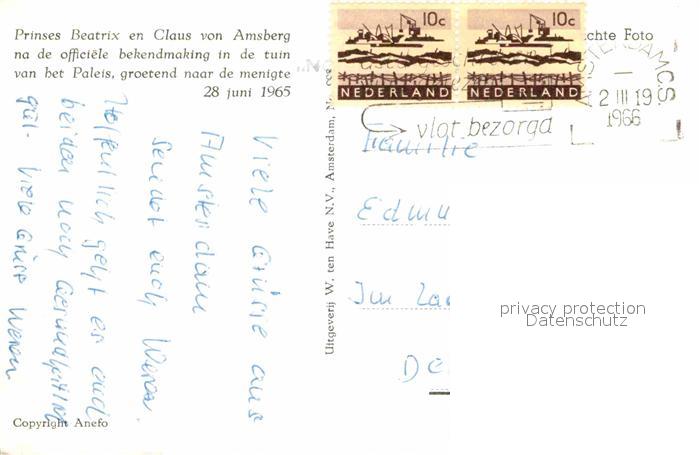 Prinses Beatrix en Claus von Amsberg
na de officiële bekendmaking in de tuin
van het Paleis, groetend naar de menigte
28 juni 1965
Viele Grüsse aus
Amsterdam
sendet euch Weren
Hoffentlich geht es euch
beiden noch
gut. Viele Grüsse Weren
Copyright Anefo
Uitgeverij W. ten Have N.V., Amsterdam,
10c
NEDERLAND
10c
NEDERLAND
chte Foto
AMSTERDAM C.S.
2 III 19
1966
vlot bezorgd
Familie
Edmu
Im
De
privacy protection
Datenschutz